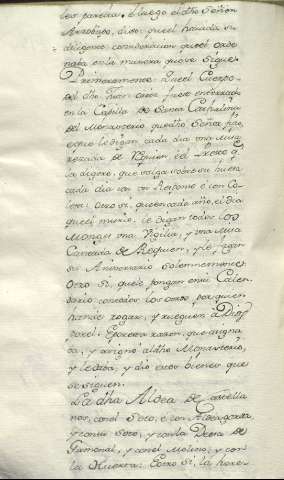 les parecia. E luego el dho Señor
Arzobispo, dixo que el havida su
diligente consideracion que el orde
nava en la manera que se sigue.
Primeramente. Que el Cuerpo
del dho fuere enterrado
en la Capilla de Santa Catherina
del Monasterio que dho Señor fizo,
è que le digan cada dia una Missa
rezada de Requien, è el Preste q
la dixere, que salga sobre su
cada dia con un Responso è con
Otro si, que en cada año, el dia
que el murio, le digan todos los
Monges una Vigilia, y una Missa
Cantada de Requiem, y le fagan
su Aniversario solemnemente.
Otro si, que le pongan en su Calen
dario, con todos los otros, por quien
han de rogar, y rueguen à Dios
por el. E por esta razon, que asigna
ba, y asignó al dho Monasterio,
y le daba, y dió estos bienes que
se siguen.
La dha Aldea de Castella
nos, con el Soto, è con Aldeagorda
y con su Soto, y con la Desa de
Fumenal, y con el Molino, y con
la Huerta: E otro si, la here-